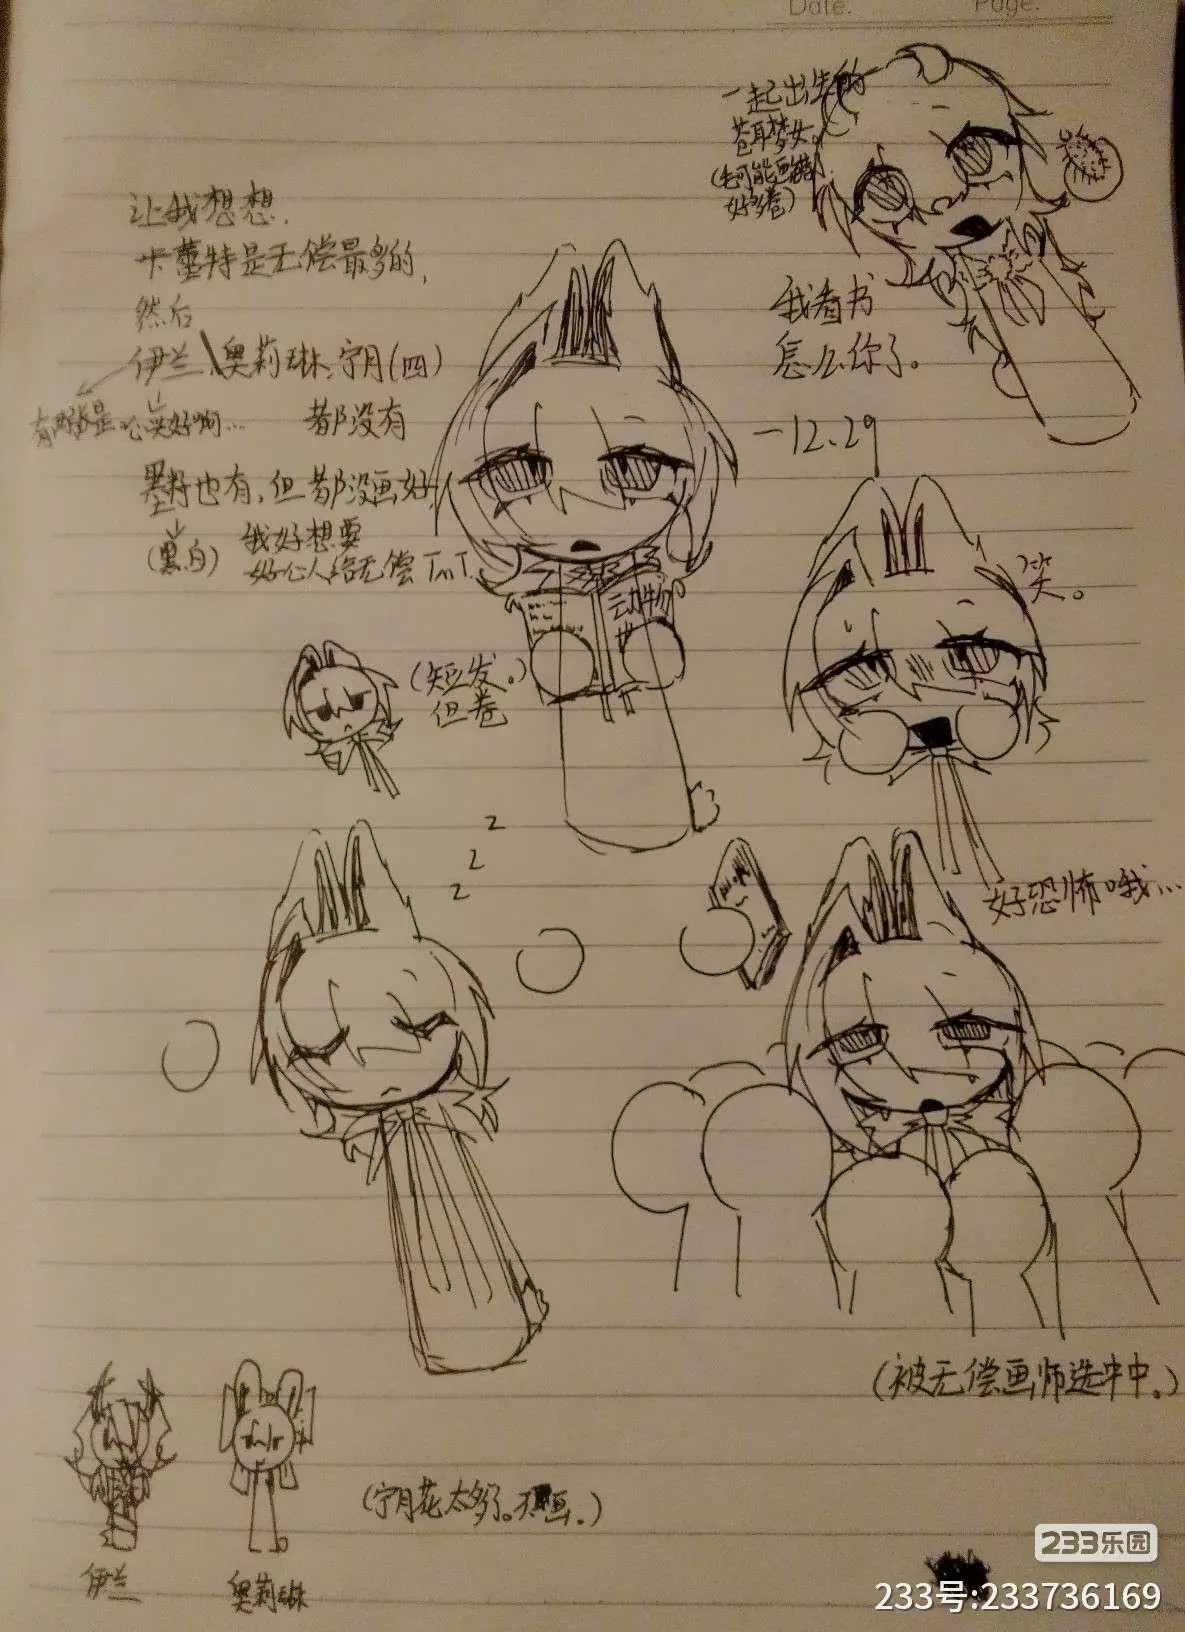 Date.
Page.
一起出生的
苍耳梦女。
(也可能画错)
好多卷)
让我想想.
卡蕾特是无偿最多的,
然后
伊兰、奥莉琳、宁月(四)
都没有
有两张是
心哭好啊...
墨籽也有,但都没画好,
(黑白)
我好想要
好心人给无偿TmT.
我看书
怎么你了。
-12.29
动物
笑。
(短发。)
但卷
z
z
z
好恐怖哦...
(被无偿画师选中中。)
(宁月花太多了。不画.)
伊兰
奥莉琳
233乐园
233号:233736169